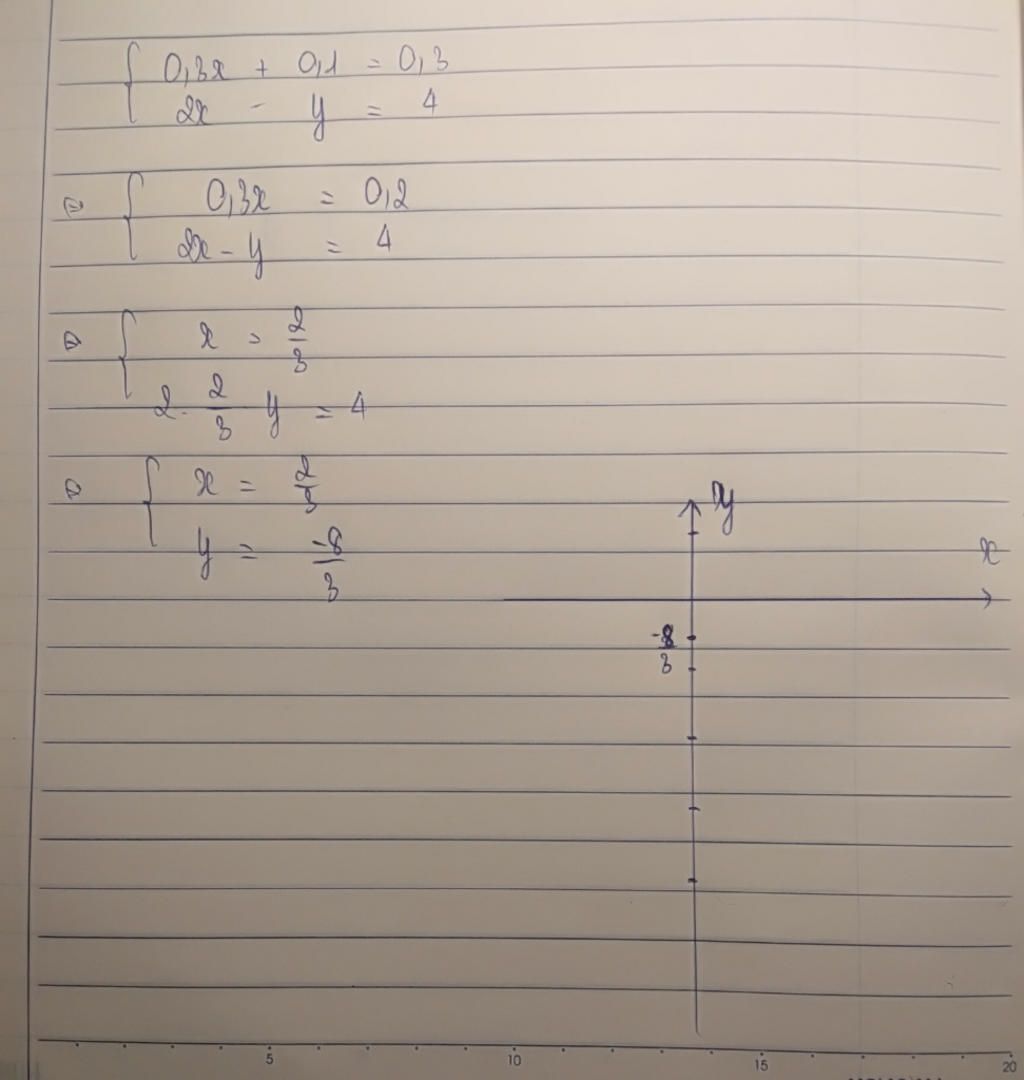 { 0,3x + 0,1 = 0,3
2x - y = 4
⇔ { 0,3x = 0,2
2x - y = 4
⇔ { x = 2/3
2. 2/3 y = 4
⇔ { x = 2/3
y = -8/3
y
x
-8/3
5 10 15 20